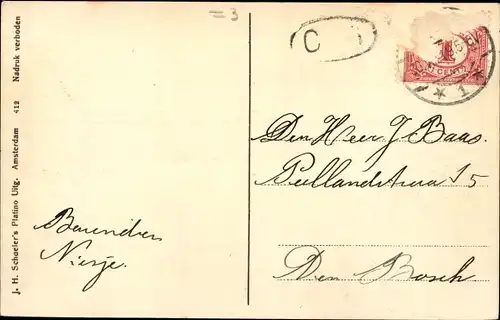 =3
J. H. Schaefer's Platino Uitg. Amsterdam 412 Nadruk verboden
C
1
CENT
* 1 *
Den Heer J Baas.
15
Den Bosch
Barendien
Niesje.